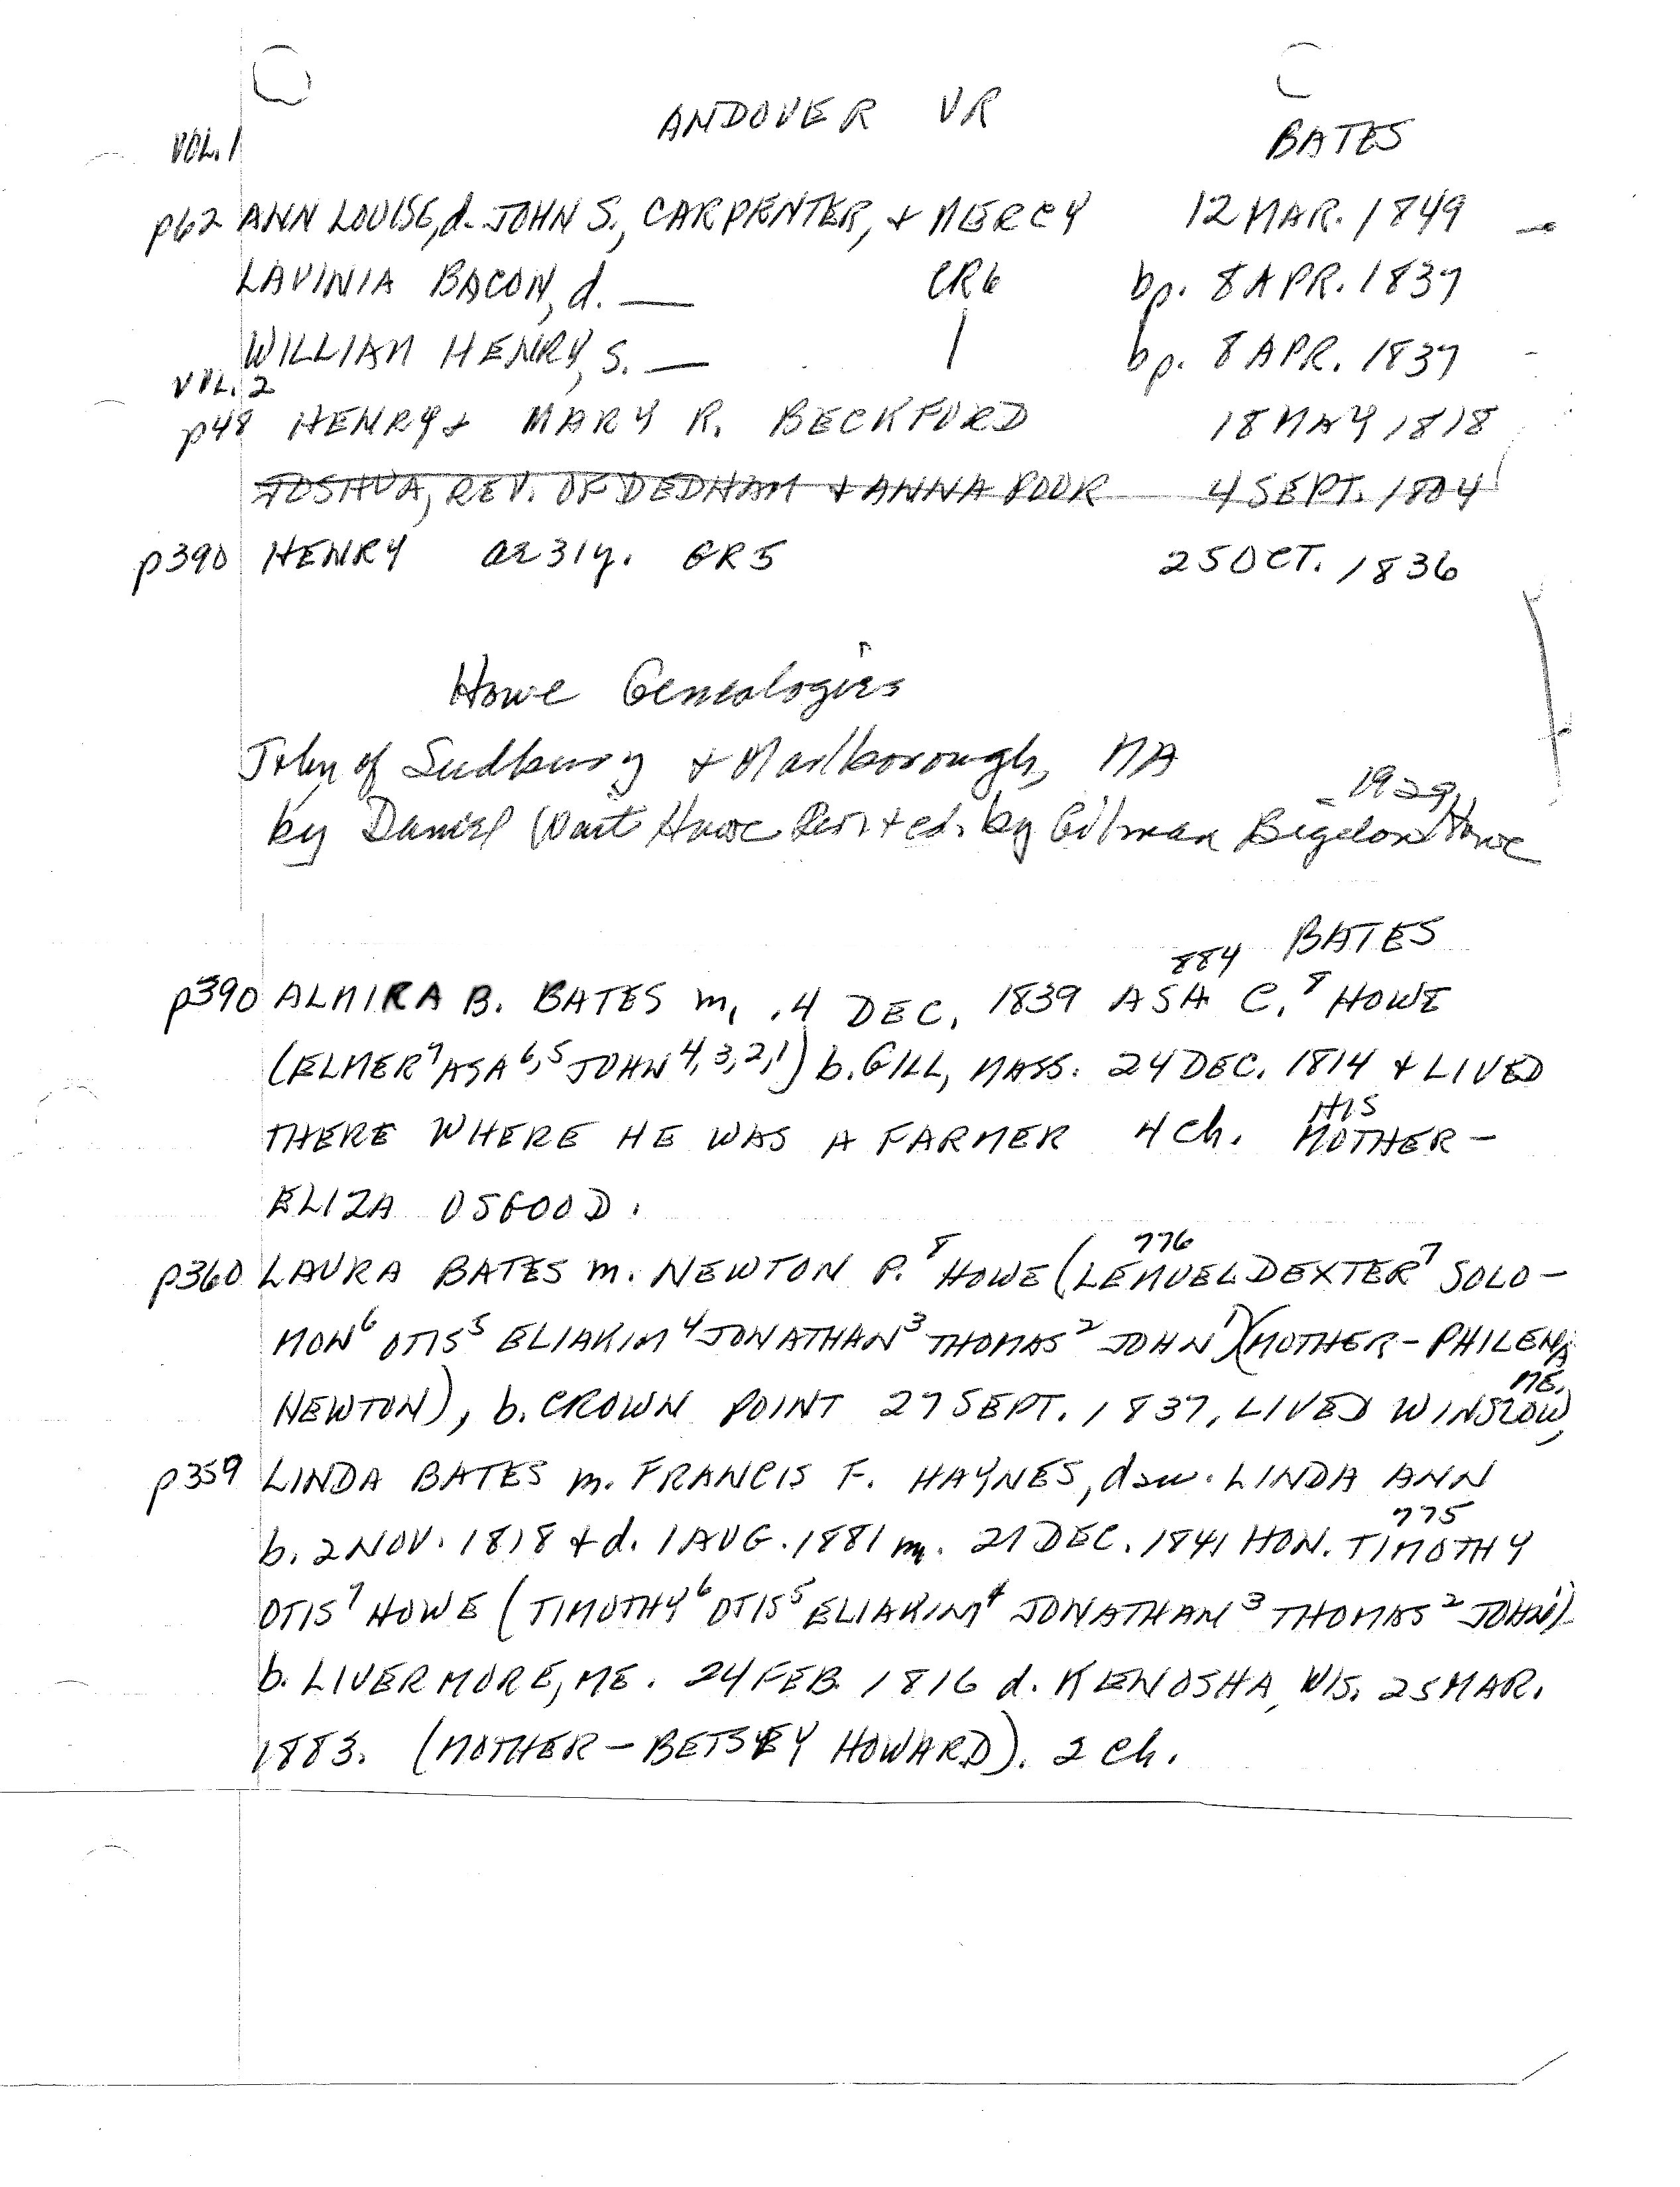 ANDOVER VR
VOL. 1 BATES
p62 ANN LOUISE, d. JOHN S., CARPENTER, + MERCY 12 MAR. 1849
LAVINIA BACON, d. — CR6 bp. 8 APR. 1837
WILLIAM HENRY, s. — | bp. 8 APR. 1837
VOL. 2
p48 HENRY + MARY R. BECKFORD 18 MAY 1818
JOSHUA, REV. OF DEDHAM + ANNA POOR 4 SEPT. 1804
p390 HENRY ae 31y. GR5 25 OCT. 1836
Howe Genealogies
John of Sudbury + Marlborough, MA
- 1929
by Daniel Wait Howe Rev. + ed. by Gilman Bigelow Howe
BATES
884
p390 ALMIRA B. BATES m. 4 DEC. 1839 ASA C.⁸ HOWE
(ELMER⁷ ASA⁶,⁵ JOHN⁴,³,²,¹) b. GILL, MASS. 24 DEC. 1814 + LIVED
THERE WHERE HE WAS A FARMER 4 ch. HIS MOTHER -
ELIZA OSGOOD.
776
p360 LAURA BATES m. NEWTON P.⁸ HOWE (LEMUEL DEXTER⁷ SOLO-
MON⁶ OTIS⁵ ELIAKIM⁴ JONATHAN³ THOMAS² JOHN¹) (MOTHER - PHILENA
NEWTON), b. CROWN POINT 27 SEPT. 1837, LIVED WINSLOW, ME.
p359 LINDA BATES m. FRANCIS F. HAYNES, dau. LINDA ANN
775
b. 2 NOV. 1818 + d. 1 AUG. 1881 m. 21 DEC. 1841 HON. TIMOTHY
OTIS⁷ HOWE (TIMOTHY⁶ OTIS⁵ ELIAKIM⁴ JONATHAN³ THOMAS² JOHN¹)
b. LIVERMORE, ME. 24 FEB. 1816 d. KENOSHA, WIS. 25 MAR.
1883. (MOTHER - BETSEY HOWARD). 2 ch.